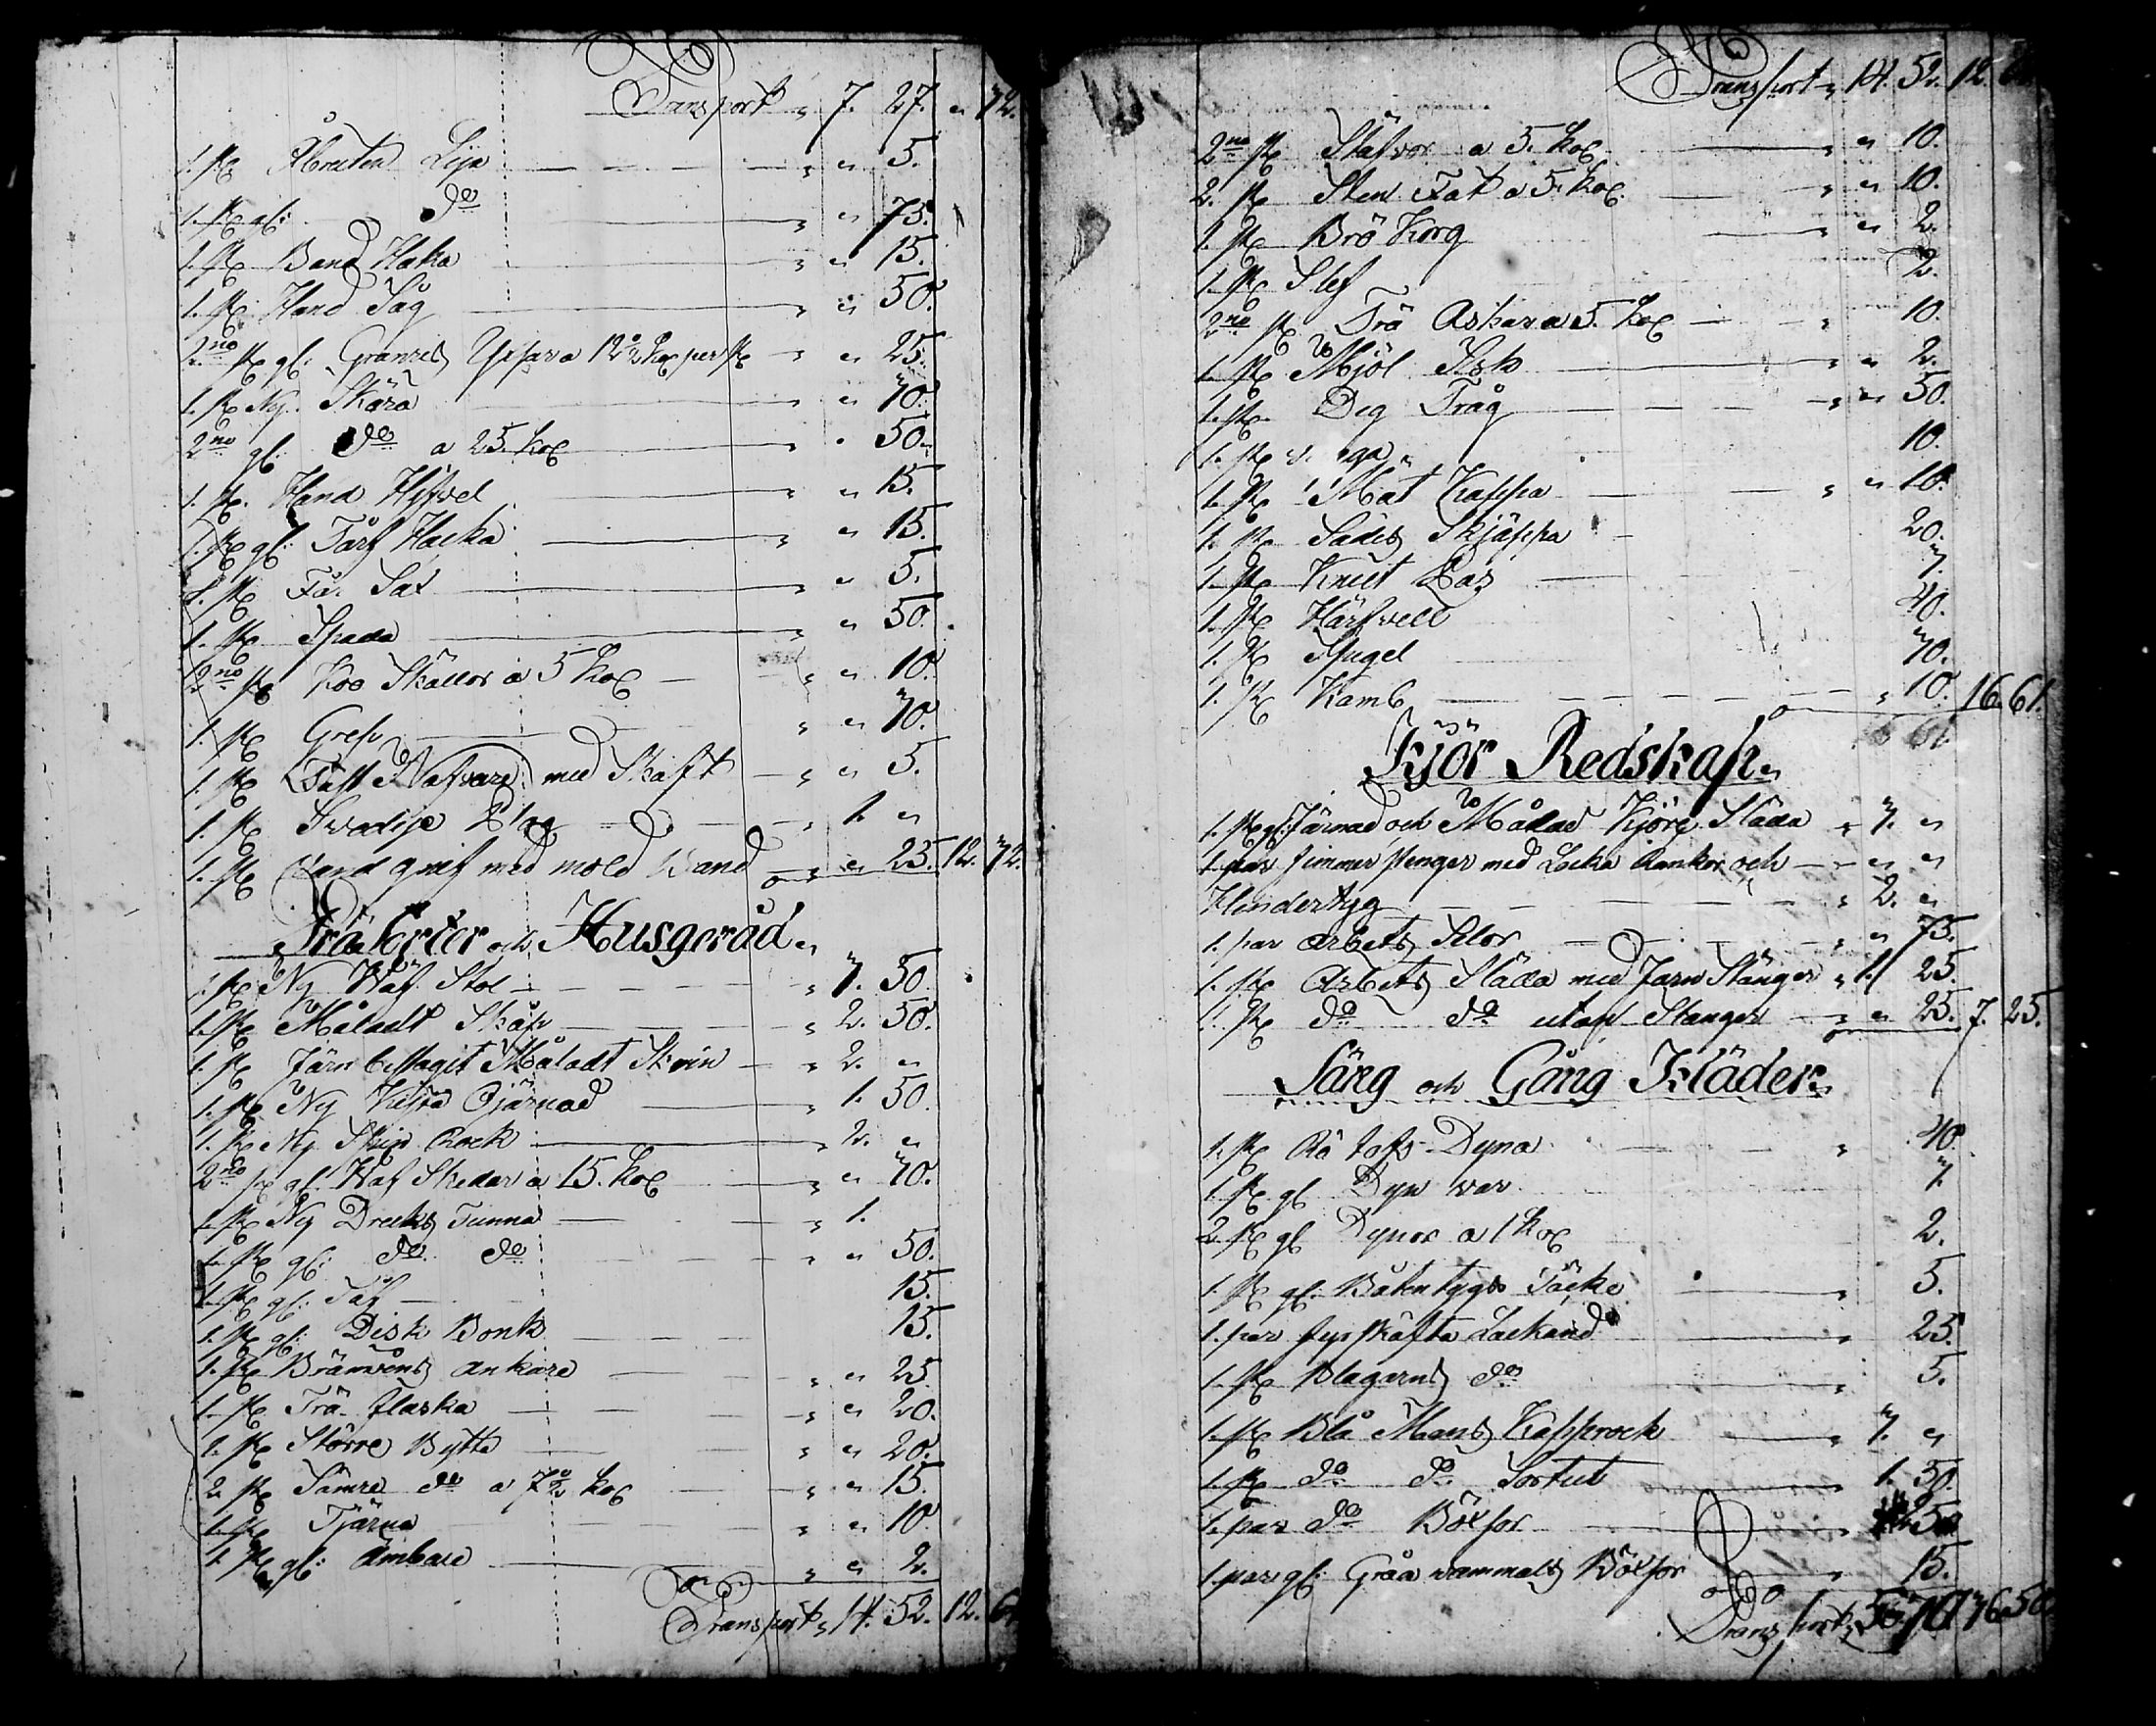 Transport " 7. 27. " 72.
1. st. Åbruten Lija " " 5.
1. st. gl: do " " 75.
1. st. Band Haka " " 15.
1. st. Hand Såg " " 50.
2no st. gl: a 12½ kop per st " " 25.
1. st. Ny Skära " " 30.
2no gl: do a 25. kop " 50.
1. st. Hand Hyfvel " " 15.
1. st. gl: Tårf Hacka " " 15.
1. st. Får Sax " " 5.
1. st. Spada " " 50.
2no st. Koo Skällor a 5 kop " " 10.
1. st. Gref " " 30.
1. st. Nafvare med Skaft " " 5.
1. st. Svedije " 1. "
1. st. med " " 25. 12. 72.
Träkorter och Husgeråd
1. st. Ny Wäf Stol " 3. 50.
1. st. Måladt Skåp " 2. 50.
1. st. Järn beslagit Måladt Skrin " 2. "
1. st. Ny Kista Ojärnad " 1. 50.
1. st. Ny Skin Rock " 2. "
2no st. gl: Wäf Skedar a 15. kop " " 30.
1. st. Ny Drecks Tunna " 1.
1. st. gl: do do " " 50.
1. st. gl: Såf 15.
1. st. gl: Disk Bonk 15.
1. st. Brännvins Ankare " " 25.
1. st. Trä flaska " " 20.
1. st. Större Bytta " " 20.
2. st. Sämre do a 7½ kop " " 15.
1. st. Tjärna " " 10.
1. st. gl: Ämbare " " 2.
Transport " 14. 52. 12.
Transport " 14. 52. 12.
2no st. Stäfvor a 5. kop " " 10.
2. st. Sten Fat a 5. kop " " 10.
1. st. Brö Korg " " 2.
1. st. Slef 2.
2no st. Trä Askar a 5. kop " 10.
1. st. Mjöl Ask " " 2.
1. st. Deg Tråg " " 50.
1. st. 10.
1. st. Mät Kappa " " 10.
1. st. Sädes Skjäppa 20.
1. st. Knut Las 3.
1. st. Härfvell 40.
1. st. Spegel 30.
1. st. Kamb " 10. 16. 61.
Kjör Redskap
1. st. gl: Järnad och Målad Kjörg Släda " 3. "
1. par timmer stenger med Locka Rankor och " "
Hindertyg " 2. "
1. par Arbets Selor " " 75.
1. st. Arbets Släda med Jarn Stänger " 1. 25.
1. st. do do utan Stanger " " 25. 7. 25.
Säng och Gång Kläder
1. st. Rå tofs Dyna " 40.
1. st. gl Dyn war 3.
2. st. gl Dynor a 1 kop 2.
1. st. gl: Båkentygs Täcke " 5.
1. par fyrskäfta Lackand " 25.
1. st. Blagarns do " 5.
1. st. Blå Mans Kapprock " 3. "
1. st. do do Sortut " 1. 50.
1. par do Böxsor "
1. par gl: Gråa wammals Böxsor " 15.
Transport